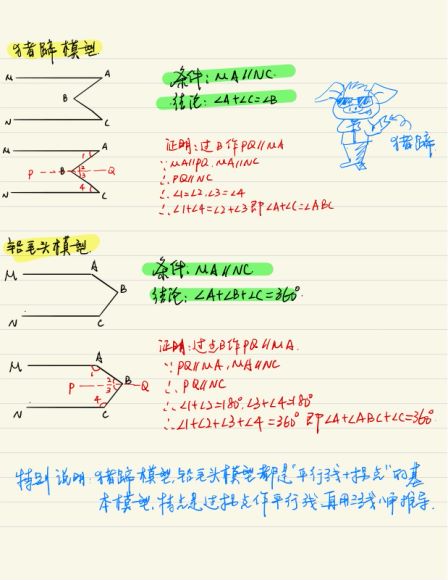 猪蹄模型
M A
B
N C
条件: MA∥NC.
结论: ∠A+∠C=∠B
猪蹄
M A
1
P B 2 3 Q
4
N C
证明: 过B作PQ∥MA
∵MA∥PQ. MA∥NC
∴PQ∥NC
∴∠1=∠2. ∠3=∠4
∴∠1+∠4=∠2+∠3即∠A+∠C=∠ABC
铅笔头模型
M A
B
N C
条件. MA∥NC
结论: ∠A+∠B+∠C=360°
M A
1
P 2 3 B Q
4
N C
证明: 过点B作PQ∥MA.
∵PQ∥MA, MA∥NC
∴PQ∥NC
∴∠1+∠2=180°. ∠3+∠4=180°
∴∠1+∠2+∠3+∠4=360° 即∠A+∠ABC+∠C=360°
特别说明: 猪蹄模型, 铅笔头模型都是"平行线+拐点"的基
本模型, 特点是过拐点作平行线再用三线八角推导.